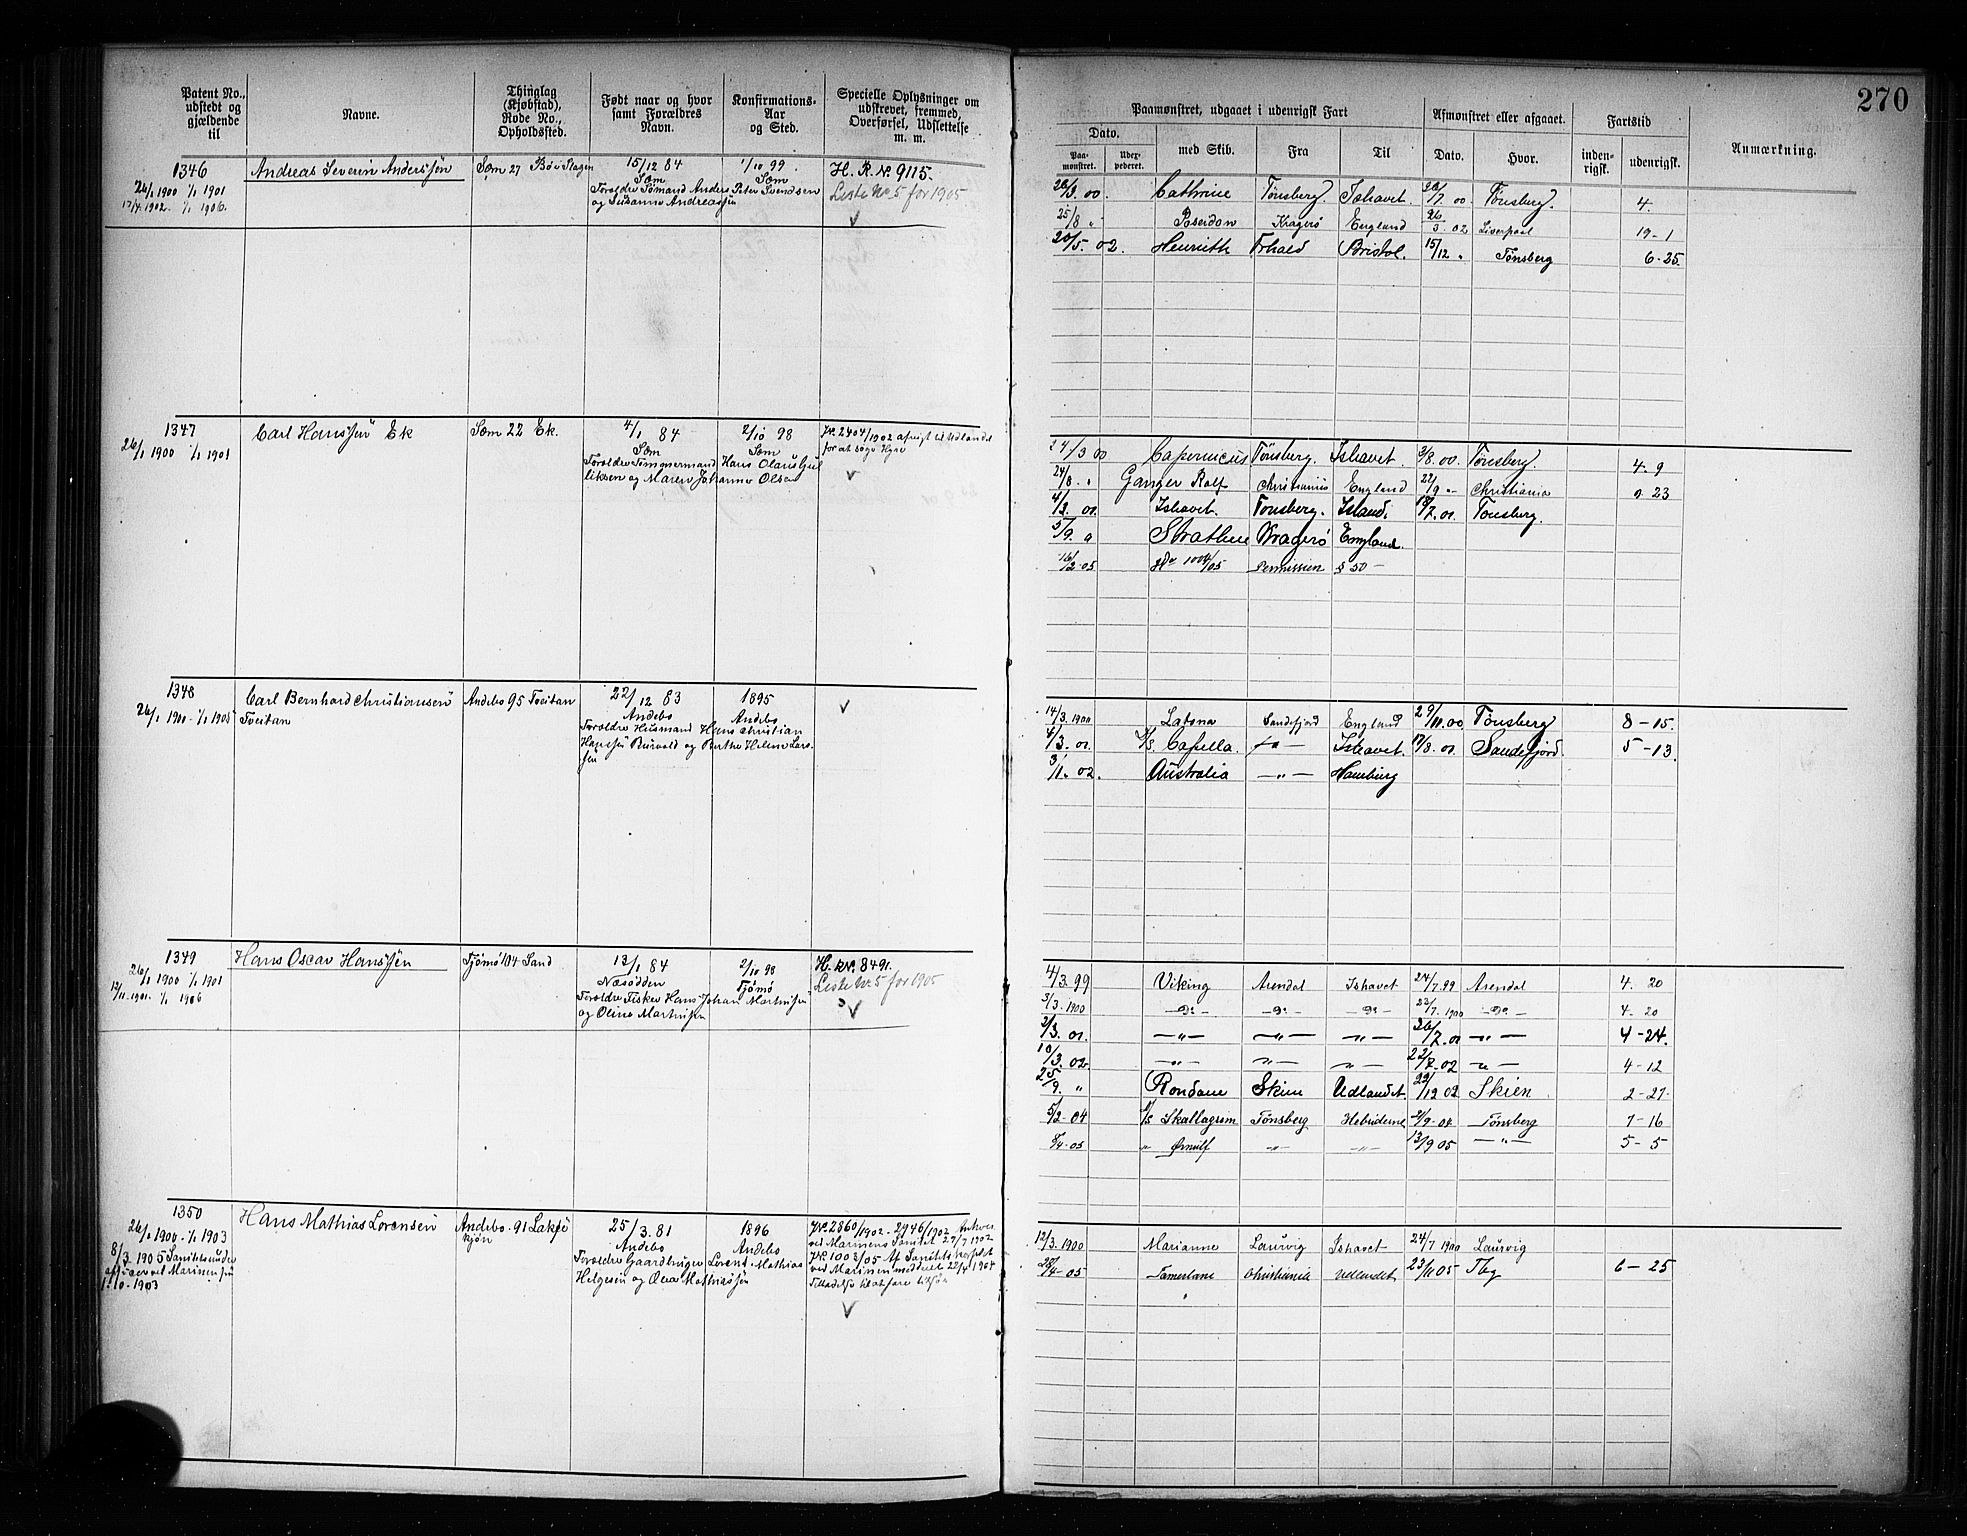 270
Patent No., udstedt og gjældende til
Navne.
Thinglag (Kjøbstad), Rode No., Opholdssted.
Født naar og hvor samt Forældres Navn.
Konfirmations-Aar og Sted.
Specielle Oplysninger om udskrevet, fremmed, Overførsel, Udslettelse m. m.
Paamønstret, udgaaet i udenrigsk Fart
Afmønstret eller afgaaet.
Fartstid
Anmærkning.
Dato.
Paa-mønstret.
Uder-pederet.
med Skib.
Fra
Til
Dato.
Hvor.
inden-rigsk.
udenrigsk.
1346
26/1 1900 1/1 1901
17/4 1902. 1/1 1906.
Andreas Severin Anderssøn
Sæm 27
15/12 84
Sæm
Forældre Sømand Anders Peter Svendsen
og Susanne Andreasso
1/10 99
Sæm
H. R. No. 9115.
Liste No. 5 for 1905
26/3. 00. Cathrine Tønsberg Ishavet. 26/7 00. Tønsberg. 4.
25/8 " Poseidon Kragerø England 26/3 02 Liverpool 19-1
20/5. 02. Henriette Frhald Bristol. 15/12 " Tønsberg 6-25.
1347
26/1 1900 1/1 1901
Carl Hanssøn Ek
Sæm 22 Ek.
4/1 84
Sæm
Forældre Tømmermand Hans Olaus Gul
liksen og Maren Johanne Olsen
2/10 98
Sæm
Jr. 2404/1902 afreist til Udlandet
for at søge Hyre
24/3 00 Copernicus Tønsberg. Ishavet. 3/8. 00. Tønsberg. 4. 9
24/8. " Ganger Rolf Christiania England 22/9 Christiania 0 23
4/3. 01. Ishavet. Tønsberg. Island. 18/7. 01. Tønsberg.
5/9. " Kragerø England.
16/2-05 Permission § 50 -
1348
26/1 1900 - 1/1 1905
Carl Bernhard Christiansen
Tveitan
Andebo 95 Tveitan
22/12 83
Andebo
Forældre Husmand Hans Christian
Hanssøn Burvold og Berthe Helene Lars-
søn
1895
Andebo
14/3. 1900 Latona Sandefjord England 29/11. 00. Tønsberg 8 - 15.
4/3. 01. S/S Capella. - " - Ishavet. 17/8. 01. Sandefjord. 5 - 13.
3/1. 02. Australia - " - Hamburg
1349
26/1 1900 1/1 1901
12/11. 1901. 1/1 1906
Hans Oscar Hanssøn
Tjømø 104 Sand
13/1 84
Næsodden
Forældre Fisker Hans Johan Martinsen
og Oline Martinsen
2/10 98
Tjømø
H. R No. 8491.
Liste No. 5 for 1905
4/3. 99 Viking Arendal Ishavet 24/7. 99 Arendal 4. 20
3/3. 1900 - Do - - Do - - Do - 23/7. 1900 - Do - 4- 20
2/3. 01. - " - - " - - " - 26/7. 01 - " - 4 - 24.
10/3. 02. - " - - " - - " - 22/7. 02 - " - 4 - 12
25/9. " Rondane Skien Udlandet 22/12 02 Skien 2 - 27.
5/2-04 S/S Skallagrim Tønsberg Hebriderne 21/9-04 Tønsberg 7 - 16
8/4-05 " Ørnulf - " - - " - 13/9 05 - " - 5 - 5
1350
26/1 1900. - 1/1 1903
8/3. 1905
1.10 - 1903
Hans Mathias Lorensen
Andebo. 91 Lakjø
kjøn
25/3. 81
Andebo
Forældre Gaardbruger Lorent Mathias
Helgesen og Olea Mathiassøn
1896
Andebo
Jr. 2860/1902 - 2946/1902
Jr. 1003/05
12/3. 1900 Marianne Laurvig Ishavet 24/7 1900 Laurvig
28/4-05 Tamerlane Christiania Udlandet 23/11 05 Tbg 6 - 25